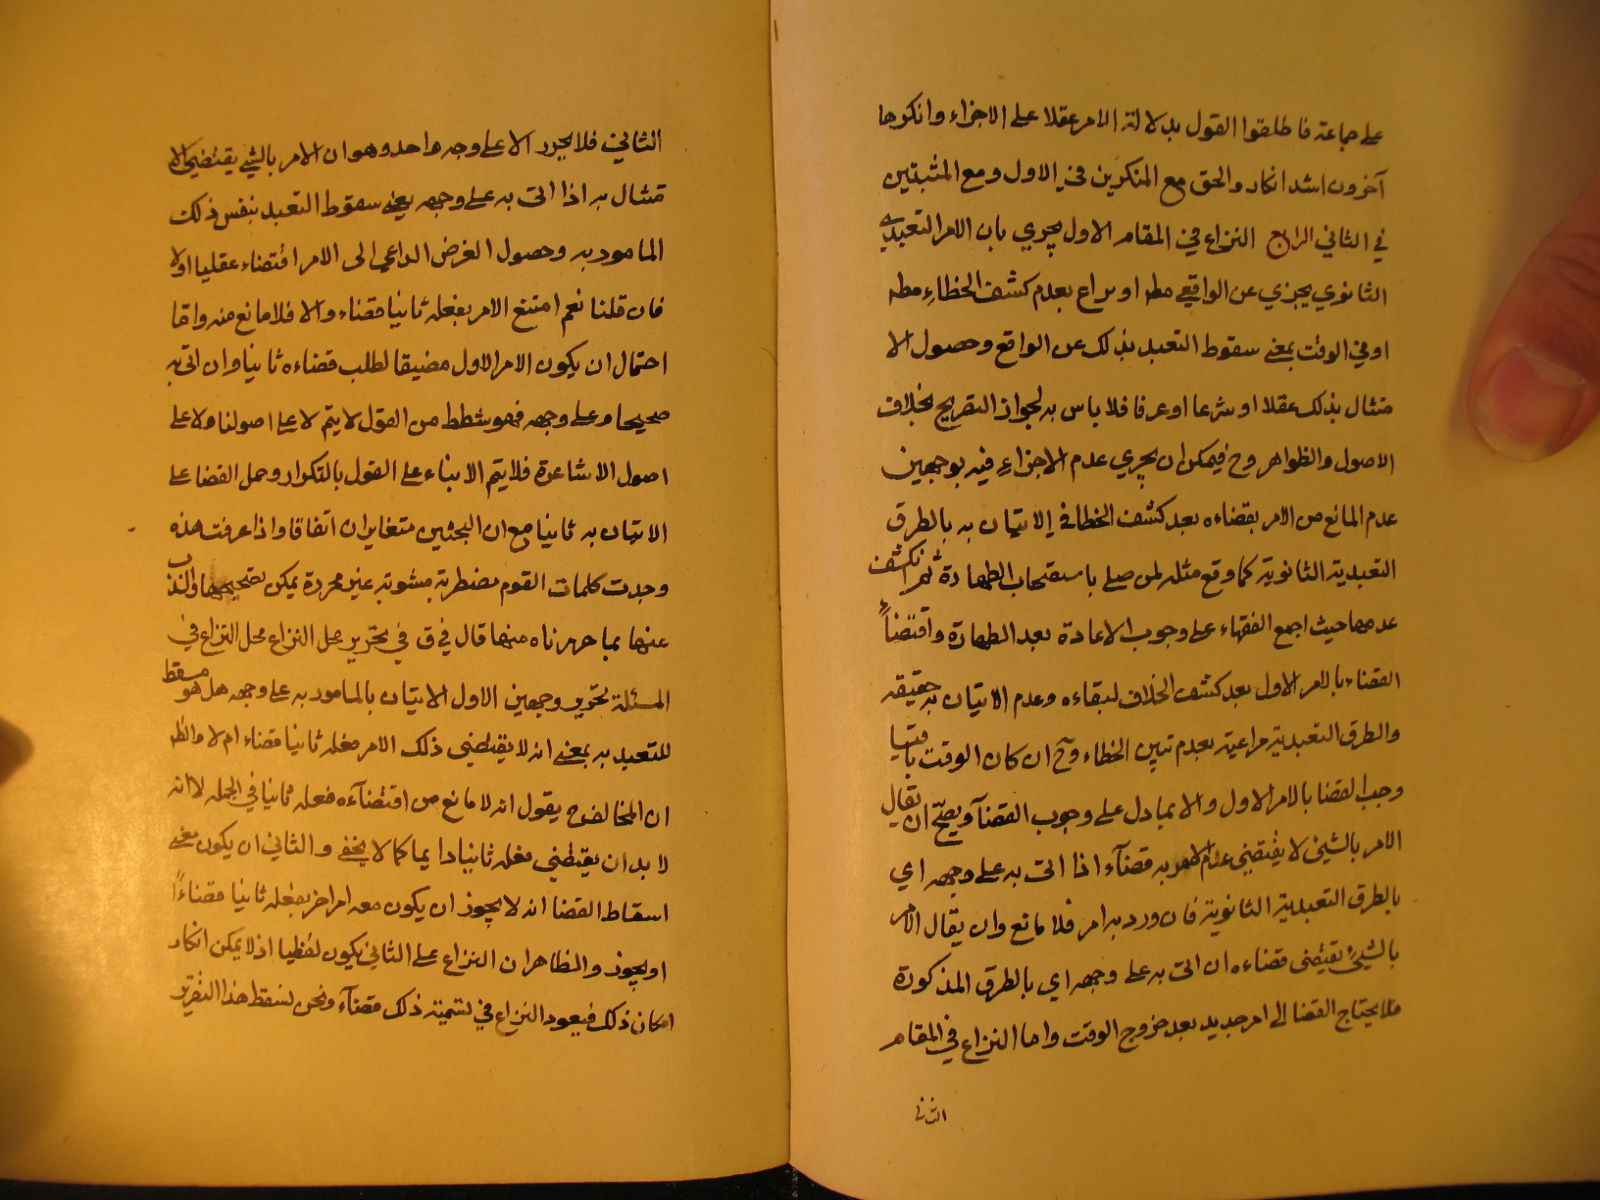 على جماعة فاطلقوا القول بدلالة الامر عقلا على الاجزاء وانكرها
آخرون اشد انكار والحق مع المنكرين في الاول ومع المثبتين
في الثاني الرابع النزاع في المقام الاول يجري بان الامر التعبدي
الثانوي يجزي عن الواقعي مطه او يراعى بعدم كشف الخطاء مطه
او في الوقت بمعنى سقوط التعبد بذلك عن الواقع وحصول الا
متثال بذلك عقلا او شرعا او عرفا فلا باس به لجواز التصريح بخلاف
الاصول والظواهر وح فيمكن ان يجري عدم الاجزاء فيه بوجهين
عدم المانع من الامر بقضاءه بعد كشف الخطا في الاتيان به بالطرق
التعبدية الثانوية كما وقع مثله لمن صلى باستصحاب الطهارة ثم انكشف
عدمها حيث اجمع الفقهاء على وجوب الاعادة بعد الطهارة واقتضاءً
القضاء بالامر الاول بعد كشف الخلاف لبقاءه وعدم الاتيان به حقيقه
والطرق التعبدية مراعية بعدم تبين الخطاء وح ان كان الوقت باقيا
وجب القضا بالامر الاول والا بما دل على وجوب القضآء ويصح ان يقال
الامر بالشئ لا يقتضي عدم الامر به قضآء اذا اتى به على وجهه اي
بالطرق التعبدية الثانوية فان ورد به امر فلا مانع وان يقال الامر
بالشئ يقتضى قضاءه ان اتى به على وجهه اي بالطرق المذكورة
فلا يحتاج القضا الى امر جديد بعد خروج الوقت واما النزاع في المقام
الثاني
الثاني فلا يحرر الا على وجه واحد وهو ان الامر بالشئ يقتضي الا
متثال به اذا اتى به على وجهه يعني سقوط التعبد بنفس ذلك
المامور به وحصول الغرض الداعي الى الامر اقتضاء عقليا اولا
فان قلنا نعم امتنع الامر بفعله ثانيا قضاء والا فلا مانع منه واما
احتمال ان يكون الامر الاول مضيقا لطلب قضاءه ثانيا وان اتى به
صحيحا وعلى وجهه فهو شطط من القول لا يتم لا على اصولنا ولا على
اصول الاشاعرة فلا يتم الا بناء على القول بالتكرار وحمل القضا على
الاتيان به ثانيا مع ان البحثين متغايران اتفاقا واذا عرفت هذه
وجدت كلمات القوم مضطربة مشوبة غير محررة يمكن تصحيحها والذب
عنها بما حررناه منها قال في ق في تحرير محل النزاع محل النزاع في
المسئلة تحرير وجهين الاول الاتيان بالمامور به على وجهه هل هو مسقط
للتعبد به بمعنى انه لا يقتضي ذلك الامر فعله ثانيا قضاء ام لا والظ
ان المخالف ح يقول انه لا مانع من اقتضآءه فعله ثانيا في الجمله لا انه
لا بد ان يقتضي فعله ثانيا دايما كما لا يخفى والثاني ان يكون معنى
اسقاط القضا انه لا يجوز ان يكون معه امر اخر بفعله ثانيا قضاءً
او يجوز والظاهر ان النزاع على الثاني يكون لفظيا اذ لا يمكن انكار
امكان ذلك فيعود النزاع في تسمية ذلك قضآء ونحن نسقط هذا التقرير